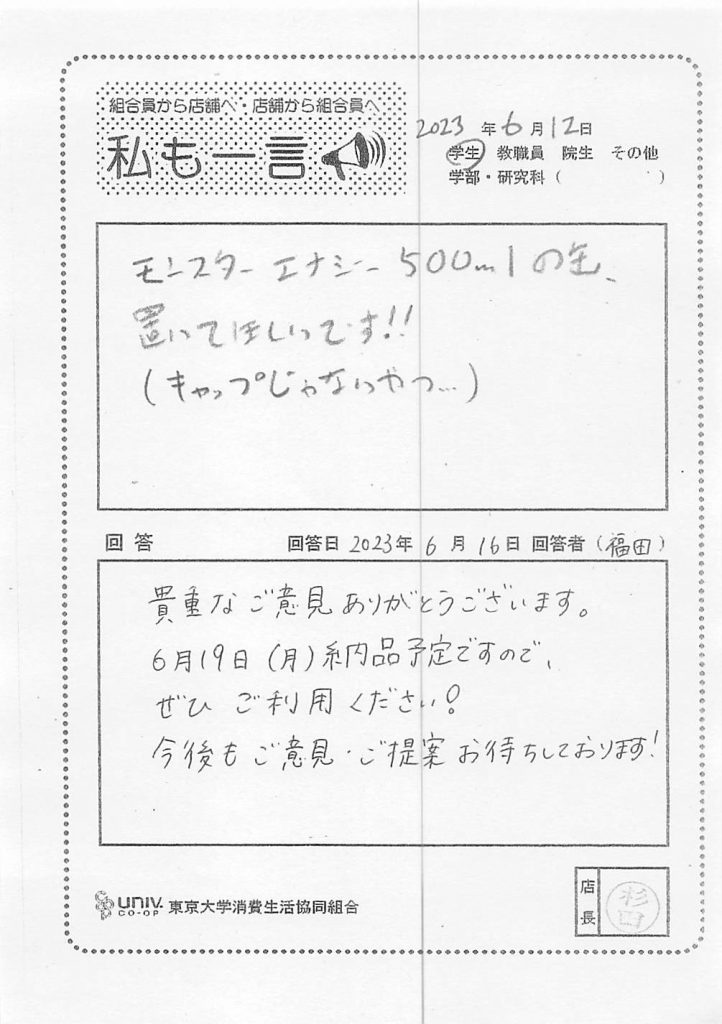 組合員から店舗へ・店舗から組合員へ
私も一言
2023年6月12日
学生 教職員 院生 その他
学部・研究科（ ）
モンスターエナジー 500mlの缶、
置いてほしいです!!
(キャップじゃないやつ…)
回答 回答日 2023年 6月 16日 回答者（福田）
貴重なご意見ありがとうございます。
6月19日(月)納品予定ですので、
ぜひ ご利用ください!
今後もご意見・ご提案お待ちしております!
UNIV. CO-OP 東京大学消費生活協同組合
店長 杉田